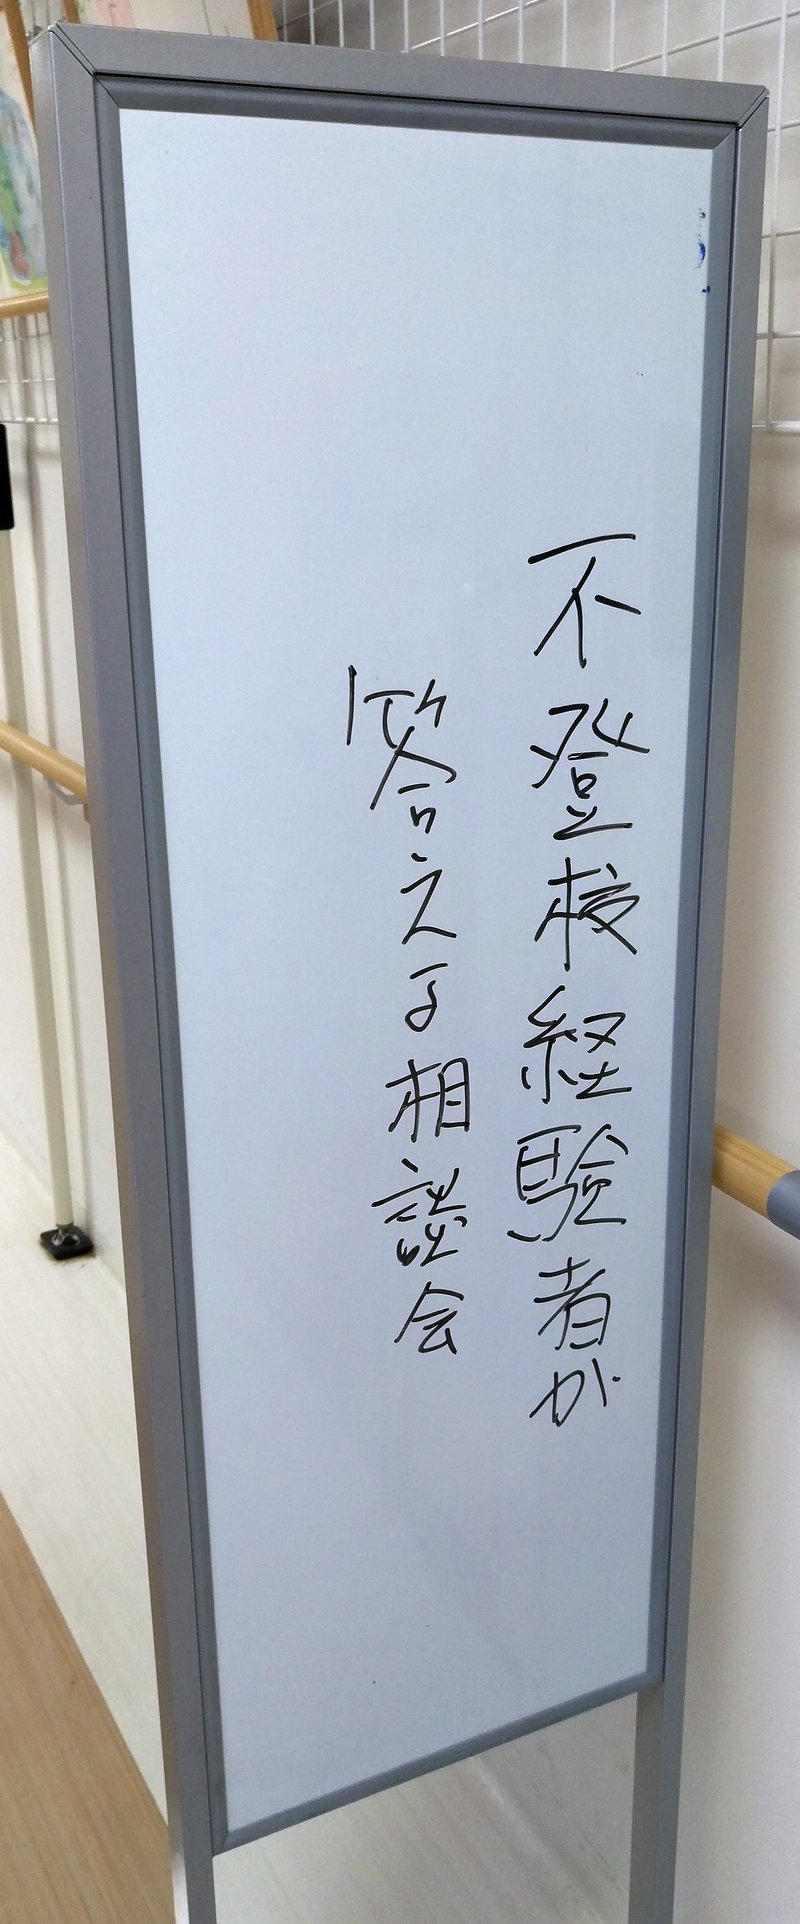 不登校経験者が
答える相談会